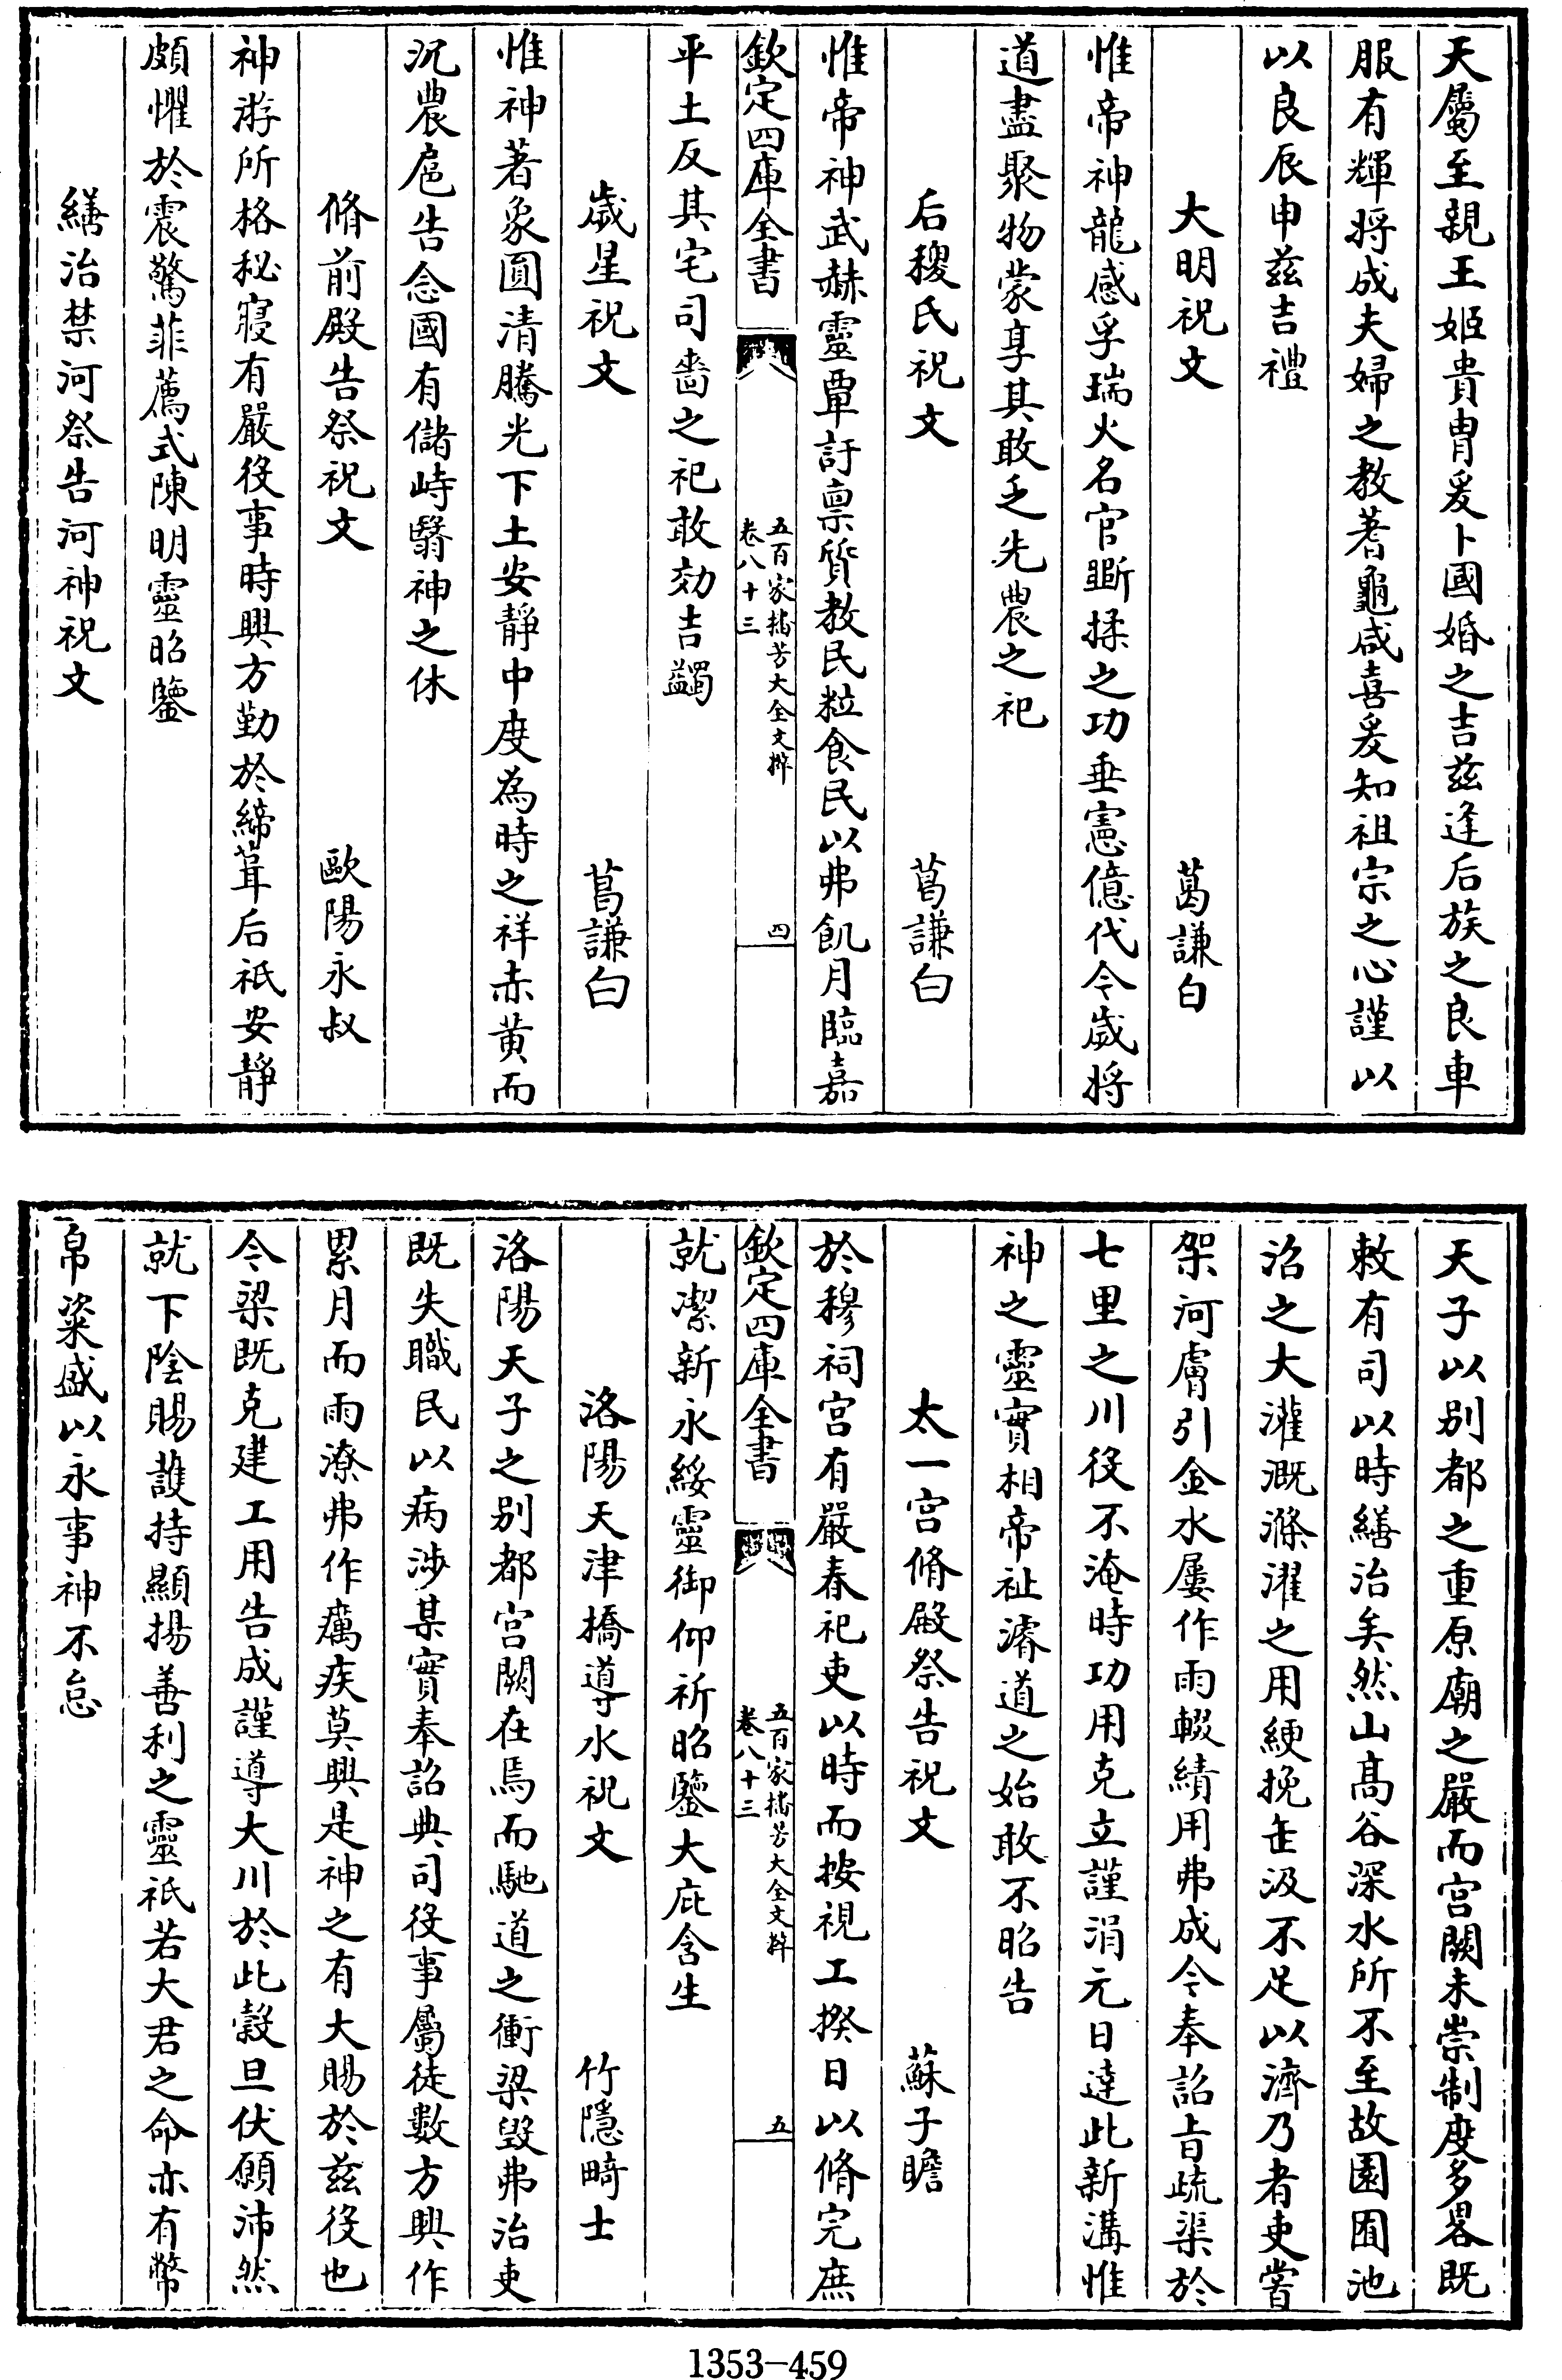 天屬至親王姬貴胄爰卜國婚之吉兹逢后族之良車
服有輝將成夫婦之教蓍龜咸喜爰知祖宗之心謹以
以良辰申兹吉禮
大明祝文 葛謙白
惟帝神龍感孚瑞火名官斲揉之功垂憲億代今歲將
道盡聚物蒙享其敢乏先農之祀
后稷氏祝文 葛謙白
惟帝神武赫靈覃訏禀質教民粒食民以弗飢月臨嘉
欽定四庫全書 五百家播芳大全文粹 卷八十三 四
平土反其宅司嗇之祀敢効吉蠲
歲星祝文 葛謙白
惟神著象圓清騰光下土安靜中度為時之祥赤黄而
沉農扈告念國有儲峙翳神之休
脩前殿告祭祝文 歐陽永叔
神游所格秘寢有嚴役事時興方勤於締葺后祇安靜
頗懼於震驚菲薦式陳明靈昭鑒
繕治禁河祭告河神祝文
天子以别都之重原廟之嚴而宫闕未崇制度多畧既
敕有司以時繕治矣然山髙谷深水所不至故園囿池
沼之大灌溉滌濯之用綆挽缶汲不足以濟乃者吏嘗
架河膚引金水屢作雨輟績用弗成今奉詔旨疏渠於
七里之川役不淹時功用克立謹涓元日達此新溝惟
神之靈實相帝祉濬道之始敢不昭告
太一宫脩殿祭告祝文 蘇子瞻
於穆祠宫有嚴春祀吏以時而按視工揆日以脩完庶
欽定四庫全書 五百家播芳大全文粹 卷八十三 五
就潔新永綏靈御仰祈昭鑒大庇含生
洛陽天津橋導水祝文 竹隱畸士
洛陽天子之别都宫闕在焉而馳道之衝梁毁弗治吏
既失職民以病涉某實奉詔典司役事屬徒數方興作
累月而雨潦弗作癘疾莫興是神之有大賜於兹役也
今梁既克建工用告成謹導大川於此穀旦伏願沛然
就下陰賜護持顯揚善利之靈祇若大君之命亦有幣
帛粢盛以永事神不怠
1353—459